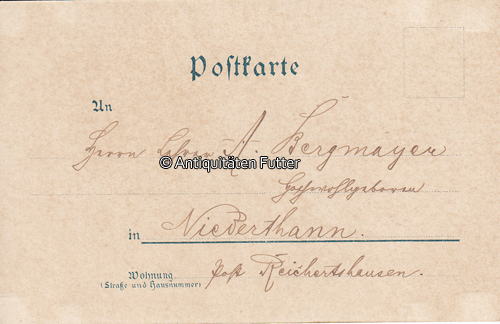 Postkarte
An
Herrn Lehrer A. Bergmayer
© Antiquitäten Futter
Hochwohlgeboren
in Niederthann.
Wohnung
(Straße und Hausnummer)
Post Reichertshausen.